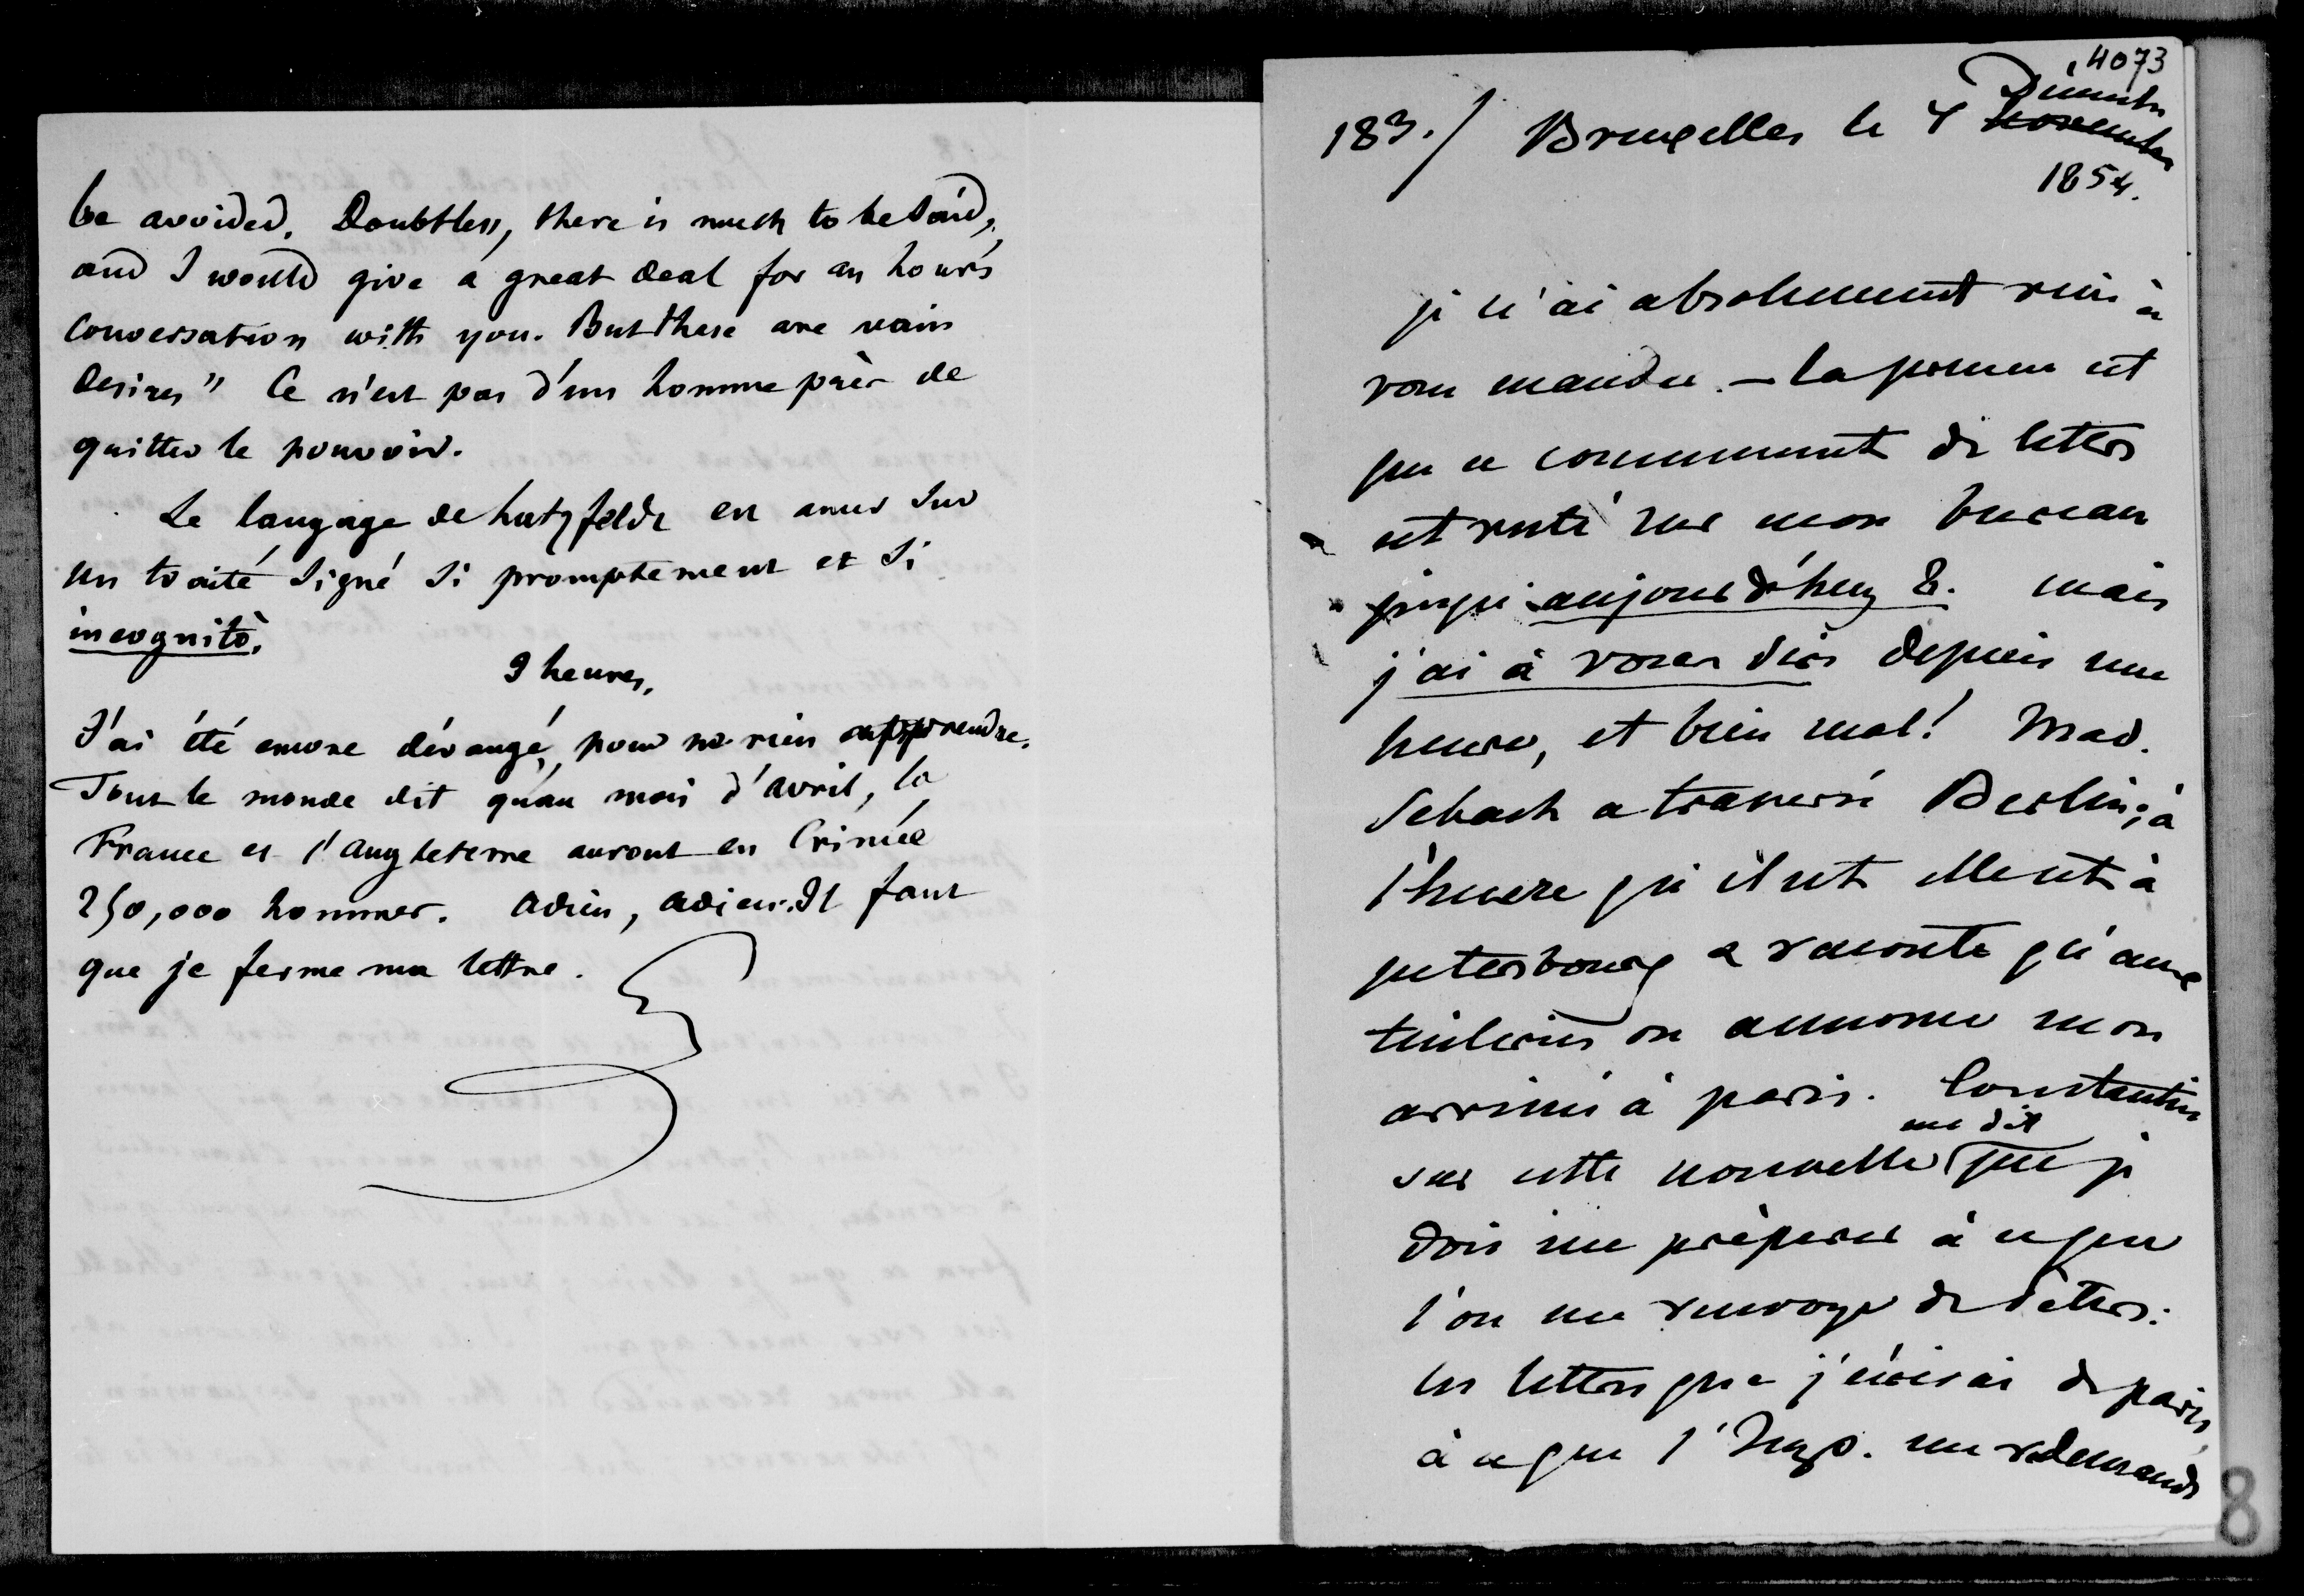 be avoided. Doubtless, there is much to be said,
and I would give a great deal for an hour's
conversation with you. But these are vain
desires" Ce n'est pas d'un homme près de
quitter le pouvoir.
Le langage de hatzfeldt est amer sur
un traité signé si promptement et si
incognitò.
9 heures,
J'ai été encore dérangé, pour ne rien apprendre.
Tout le monde dit qu'au mois d'avril, la
France et l'angleterre auront en Crimée
250,000 hommes. adieu, adieu. Il faut
que je ferme ma lettre.
4073
183./ Bruxelles le 4 novembre
Décembre
1854.
je n'ai absolument rien à
vous mander. — la preuve est
que ce commencement de lettre
est resté sur mon bureau
jusqu'aujourd'huy 8. mais
j'ai à vous dire depuis une
heure, et bien mal! Mad.
Sebach a traversé Berlin; à
l'heure qu'il est elle est à
petersbourg a raconté qu'aux
tuileries on annonce mon
arrivée à paris. Constantin
me dit
sur cette nouvelle que je
dois me préparer à ce que
l'on me renvoye de
les lettres que j'écrivis de paris
à ce que l'Imp. me redemande
8